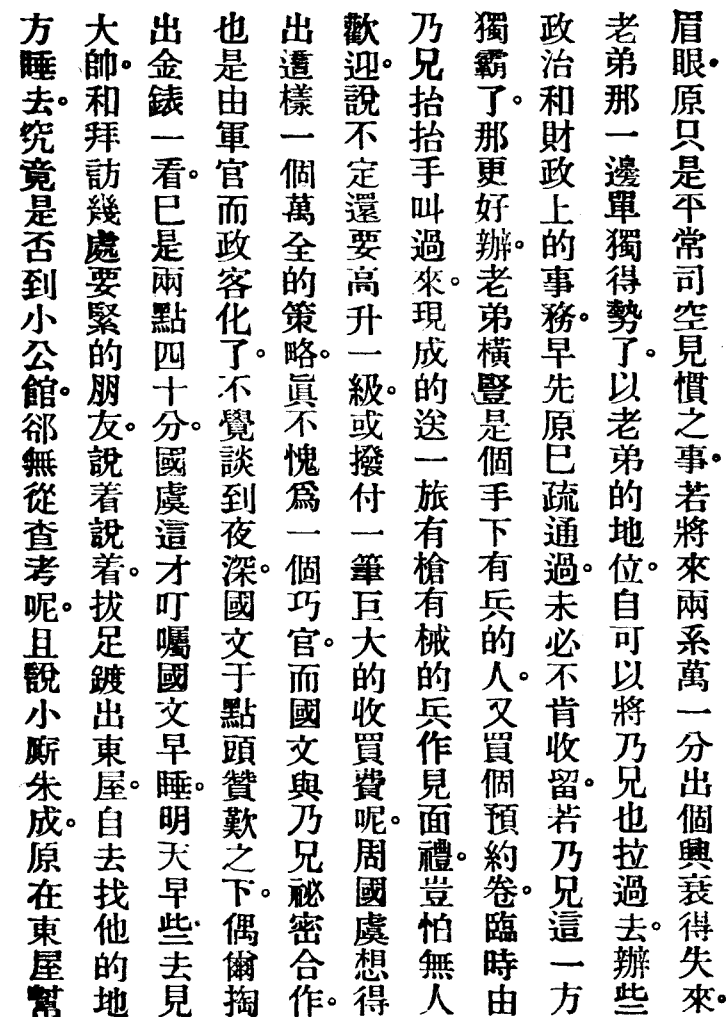 眉眼。原只是平常司空見慣之事。若將來兩系萬一分出個興衰得失來。
老弟那一邊單獨得勢了。以老弟的地位。自可以將乃兄也拉過去。辦些
政治和財政上的事務。早先原已疏通過。未必不肯收留。若乃兄這一方
獨霸了。那更好辦。老弟橫豎是個手下有兵的人。又買個預約卷。臨時由
乃兄抬抬手叫過來。現成的送一旅有槍有械的兵作見面禮。豈怕無人
歡迎。說不定還要高升一級。或撥付一筆巨大的收買費呢。周國虞想得
出這樣一個萬全的策略。眞不愧爲一個巧官。而國文與乃兄祕密合作。
也是由軍官而政客化了。不覺談到夜深。國文于點頭贊歎之下。偶爾掏
出金錶一看。巳是兩點四十分。國虞這才叮囑國文早睡。明天早些去見
大帥。和拜訪幾處要緊的朋友。說着說着。拔足踱出東屋。自去找他的地
方睡去。究竟是否到小公館。郤無從查考呢。且說小廝朱成。原在東屋幫